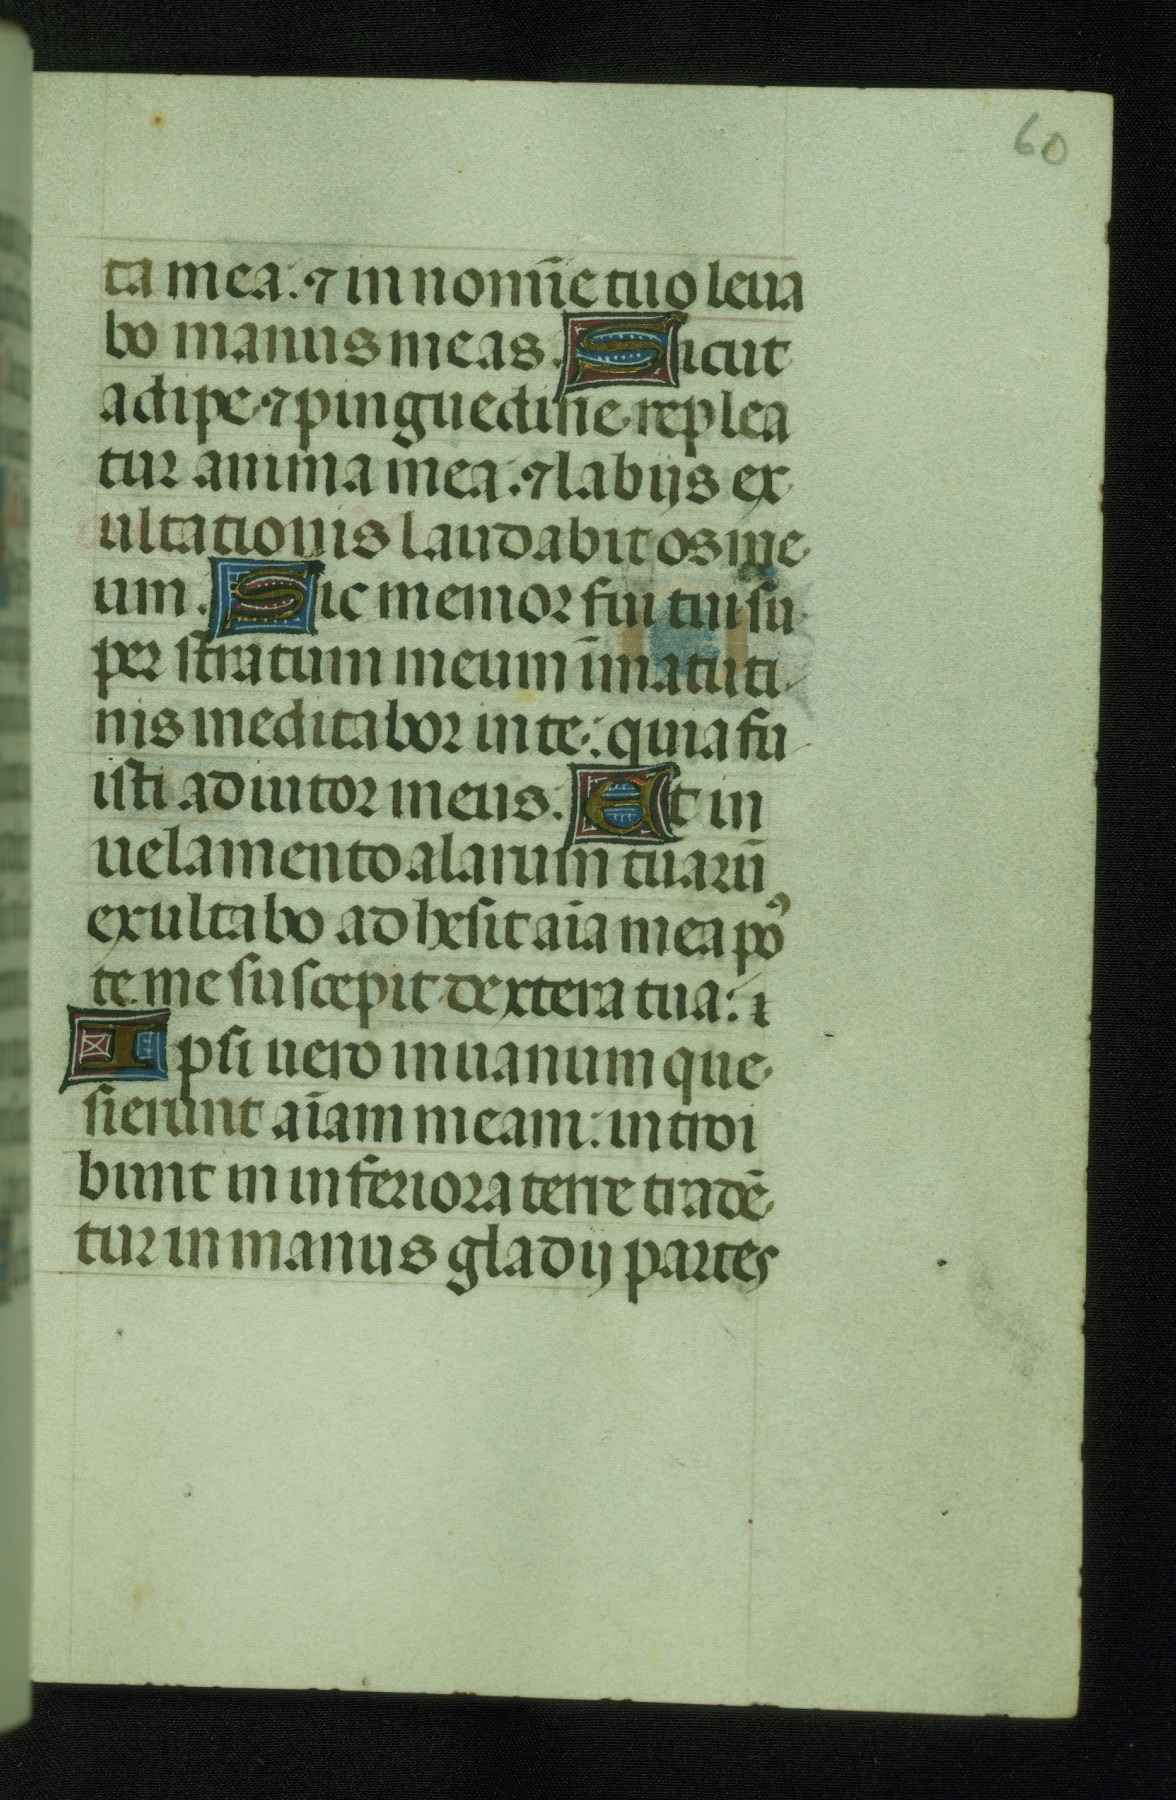 60
ta mea: ⁊ in nomīe tuo leua
bo manus meas. Sicut
adipe ⁊ pinguedine replea
tur anima mea: ⁊ labijs ex
ultationis laudabit os me
um. Sic memor fui tui su
per stratum meum ī matuti
nis meditabor in te: quia fu
isti adiutor meus. Et in
uelamento alarum tuarū
exultabo adhesit aīa mea poꝰ
te me suscepit dextera tua:
Ipsi uero in uanum que
sierunt aīam meam: introi
bunt in inferiora terre tradē
tur in manus gladij partes